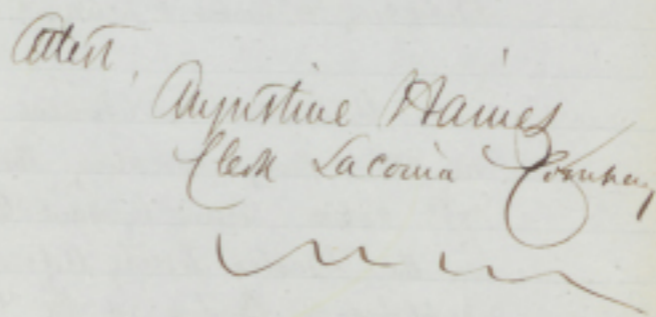 Attest,
Augustine Haines
Clerk Laconia Company